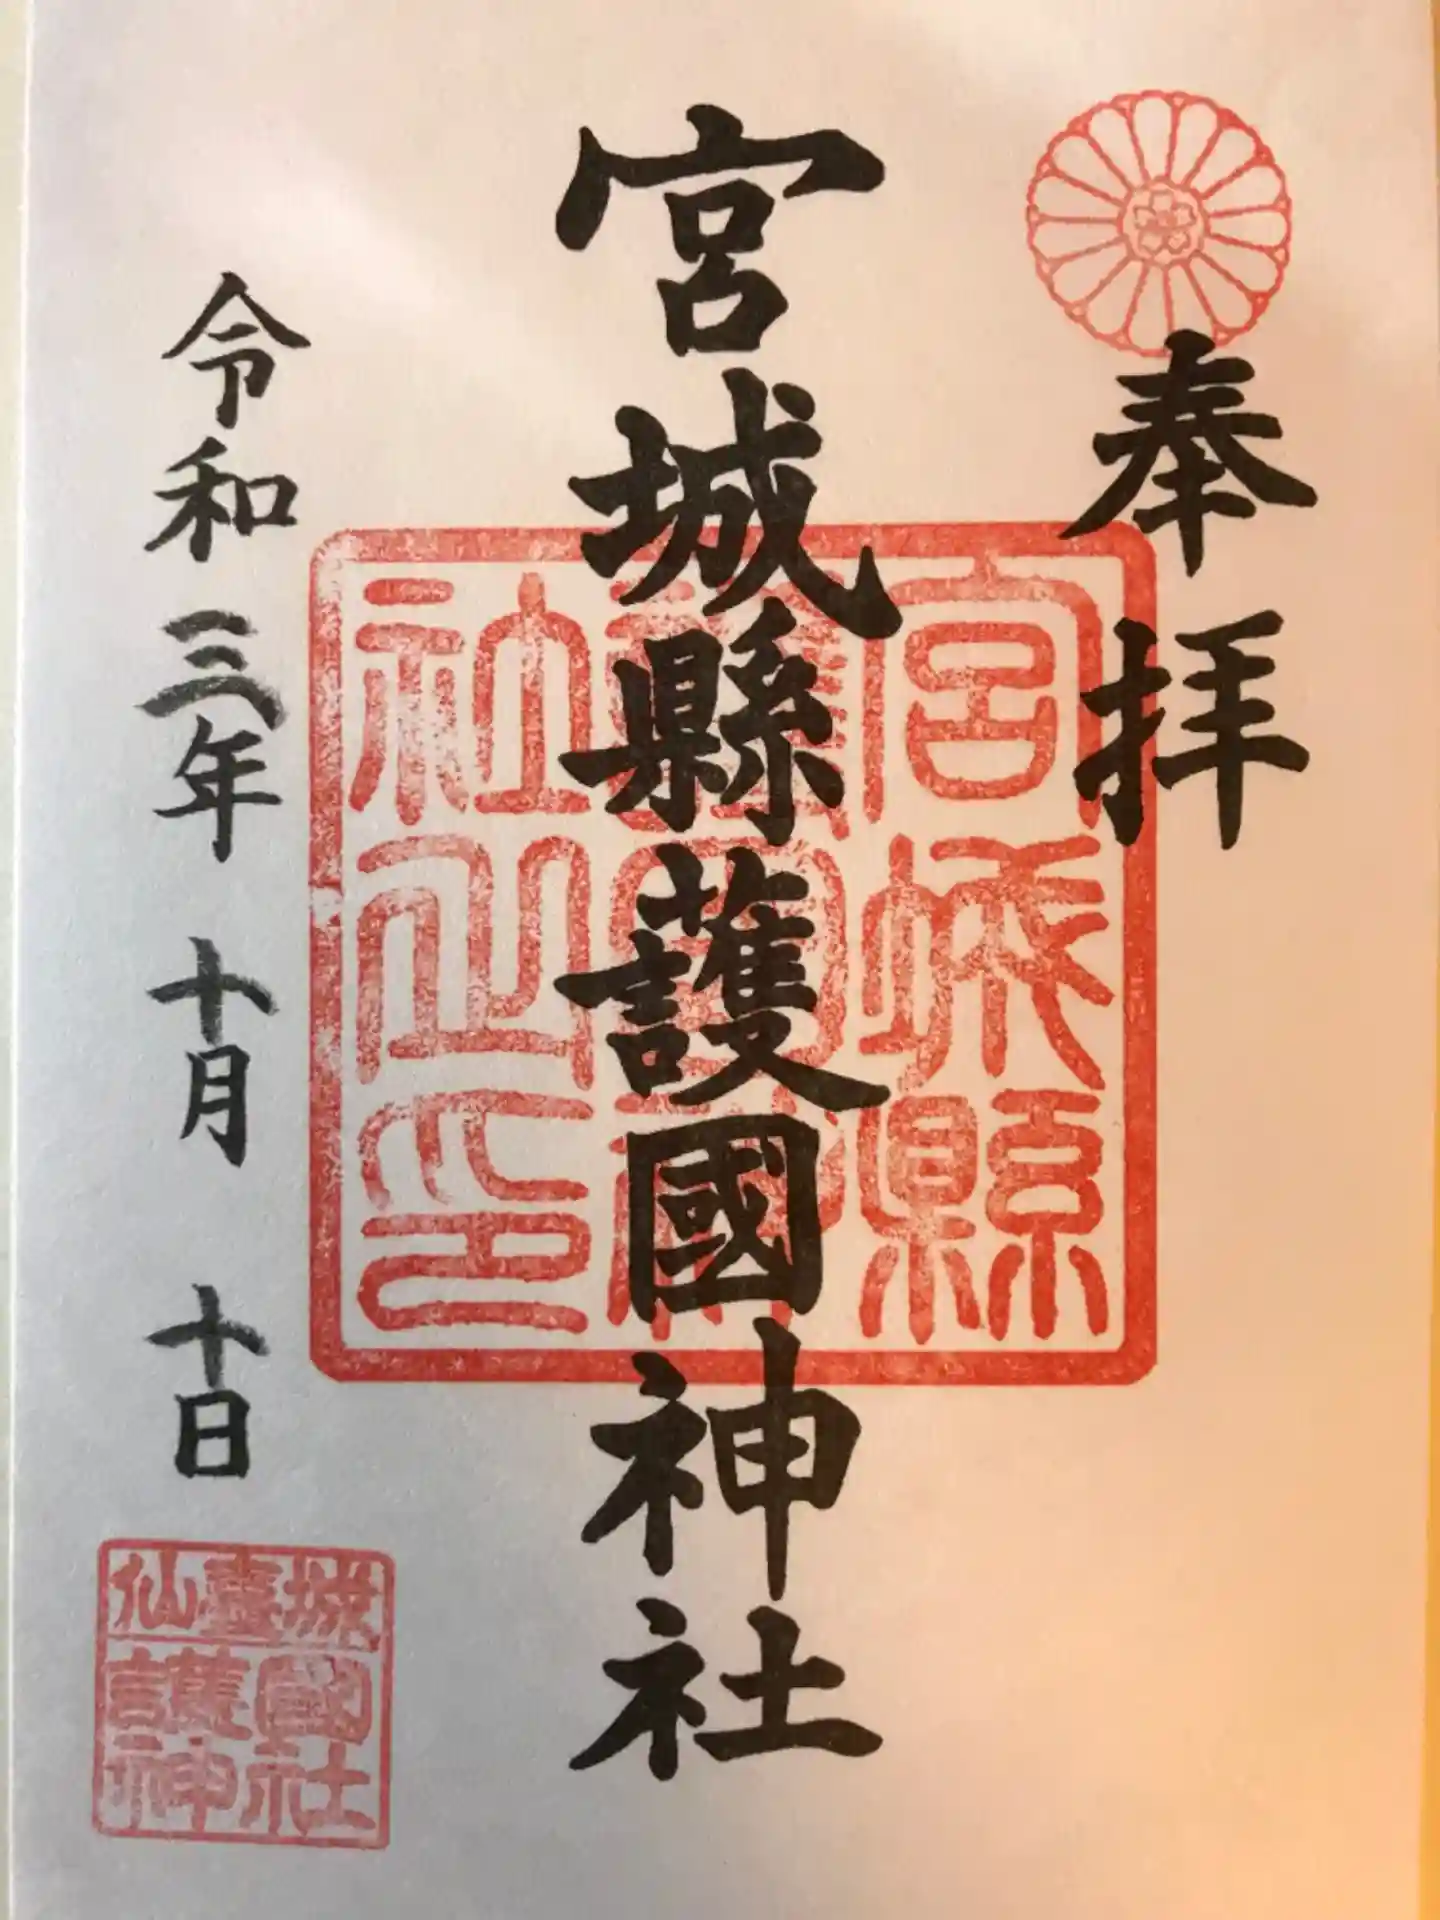 奉拝
宮城縣護國神社
宮城縣護國神社之印
令和三年 十月 十日
仙臺城
護國
神社